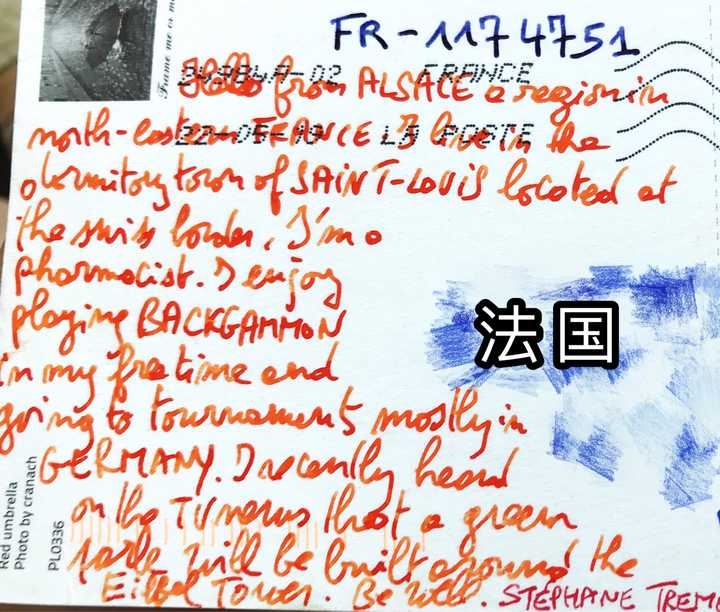 FR-1174751
Frame me or m
04984A-02 FRANCE
22-05-19 LA POSTE
Hello from ALSACE a region in
north-eastern FRANCE I live in the
dormitory town of SAINT-LOUIS located at
the swiss border, I'm a
pharmacist. I enjoy
playing BACKGAMMON
in my free time and
going to tournaments mostly in
GERMANY. I recently heard
on the TV news that a green
park will be built around the
Eiffel Tower. Be well. STEPHANE TREM
法国
Red umbrella
Photo by cranach
PL0336